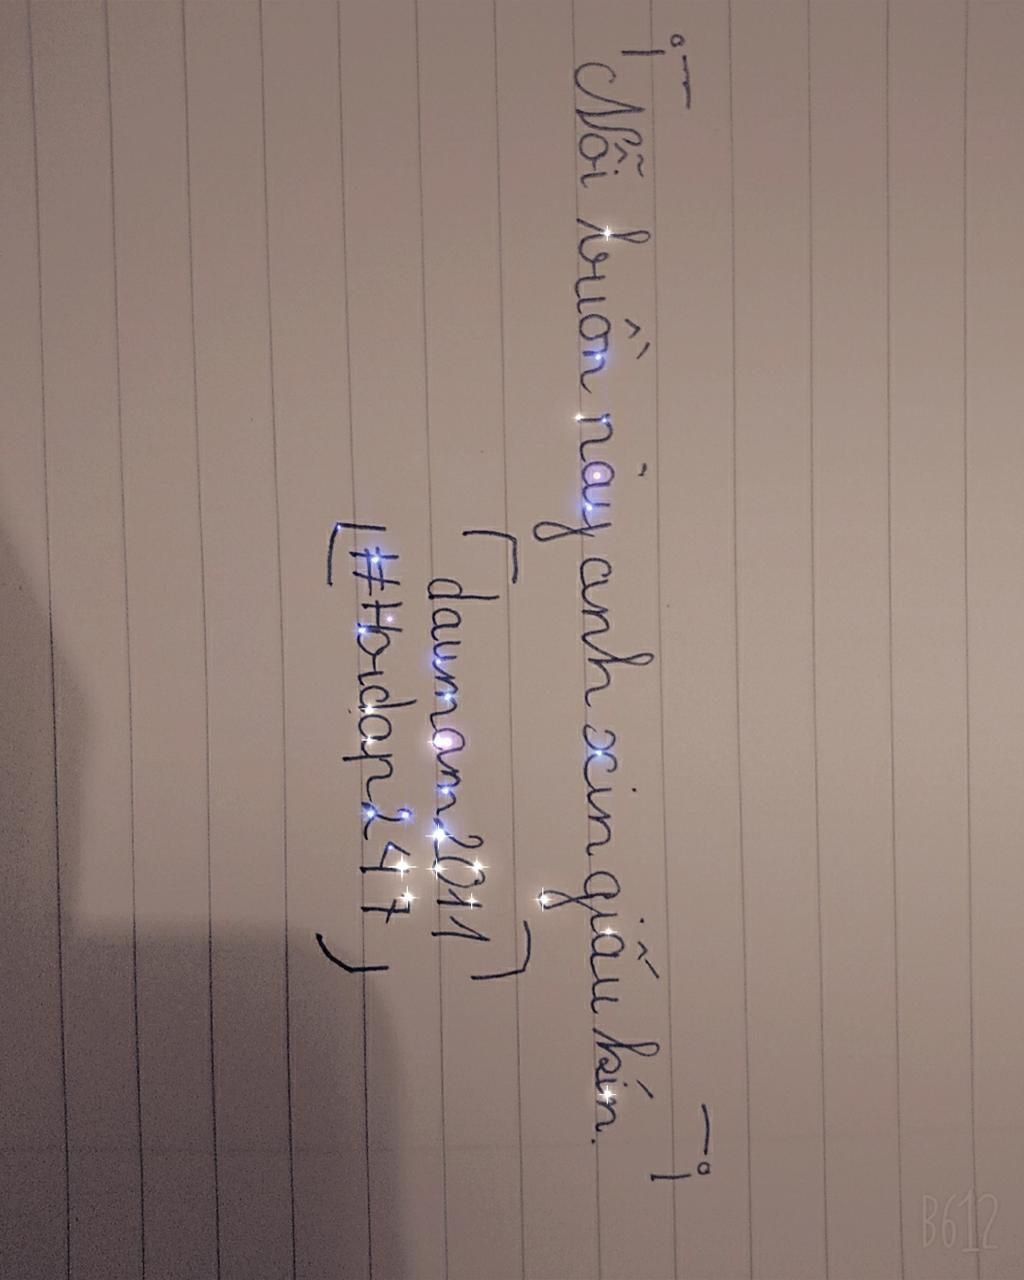 Nỗi buồn này anh xin giấu kín.
daumam2011
#Hoidap247
B612